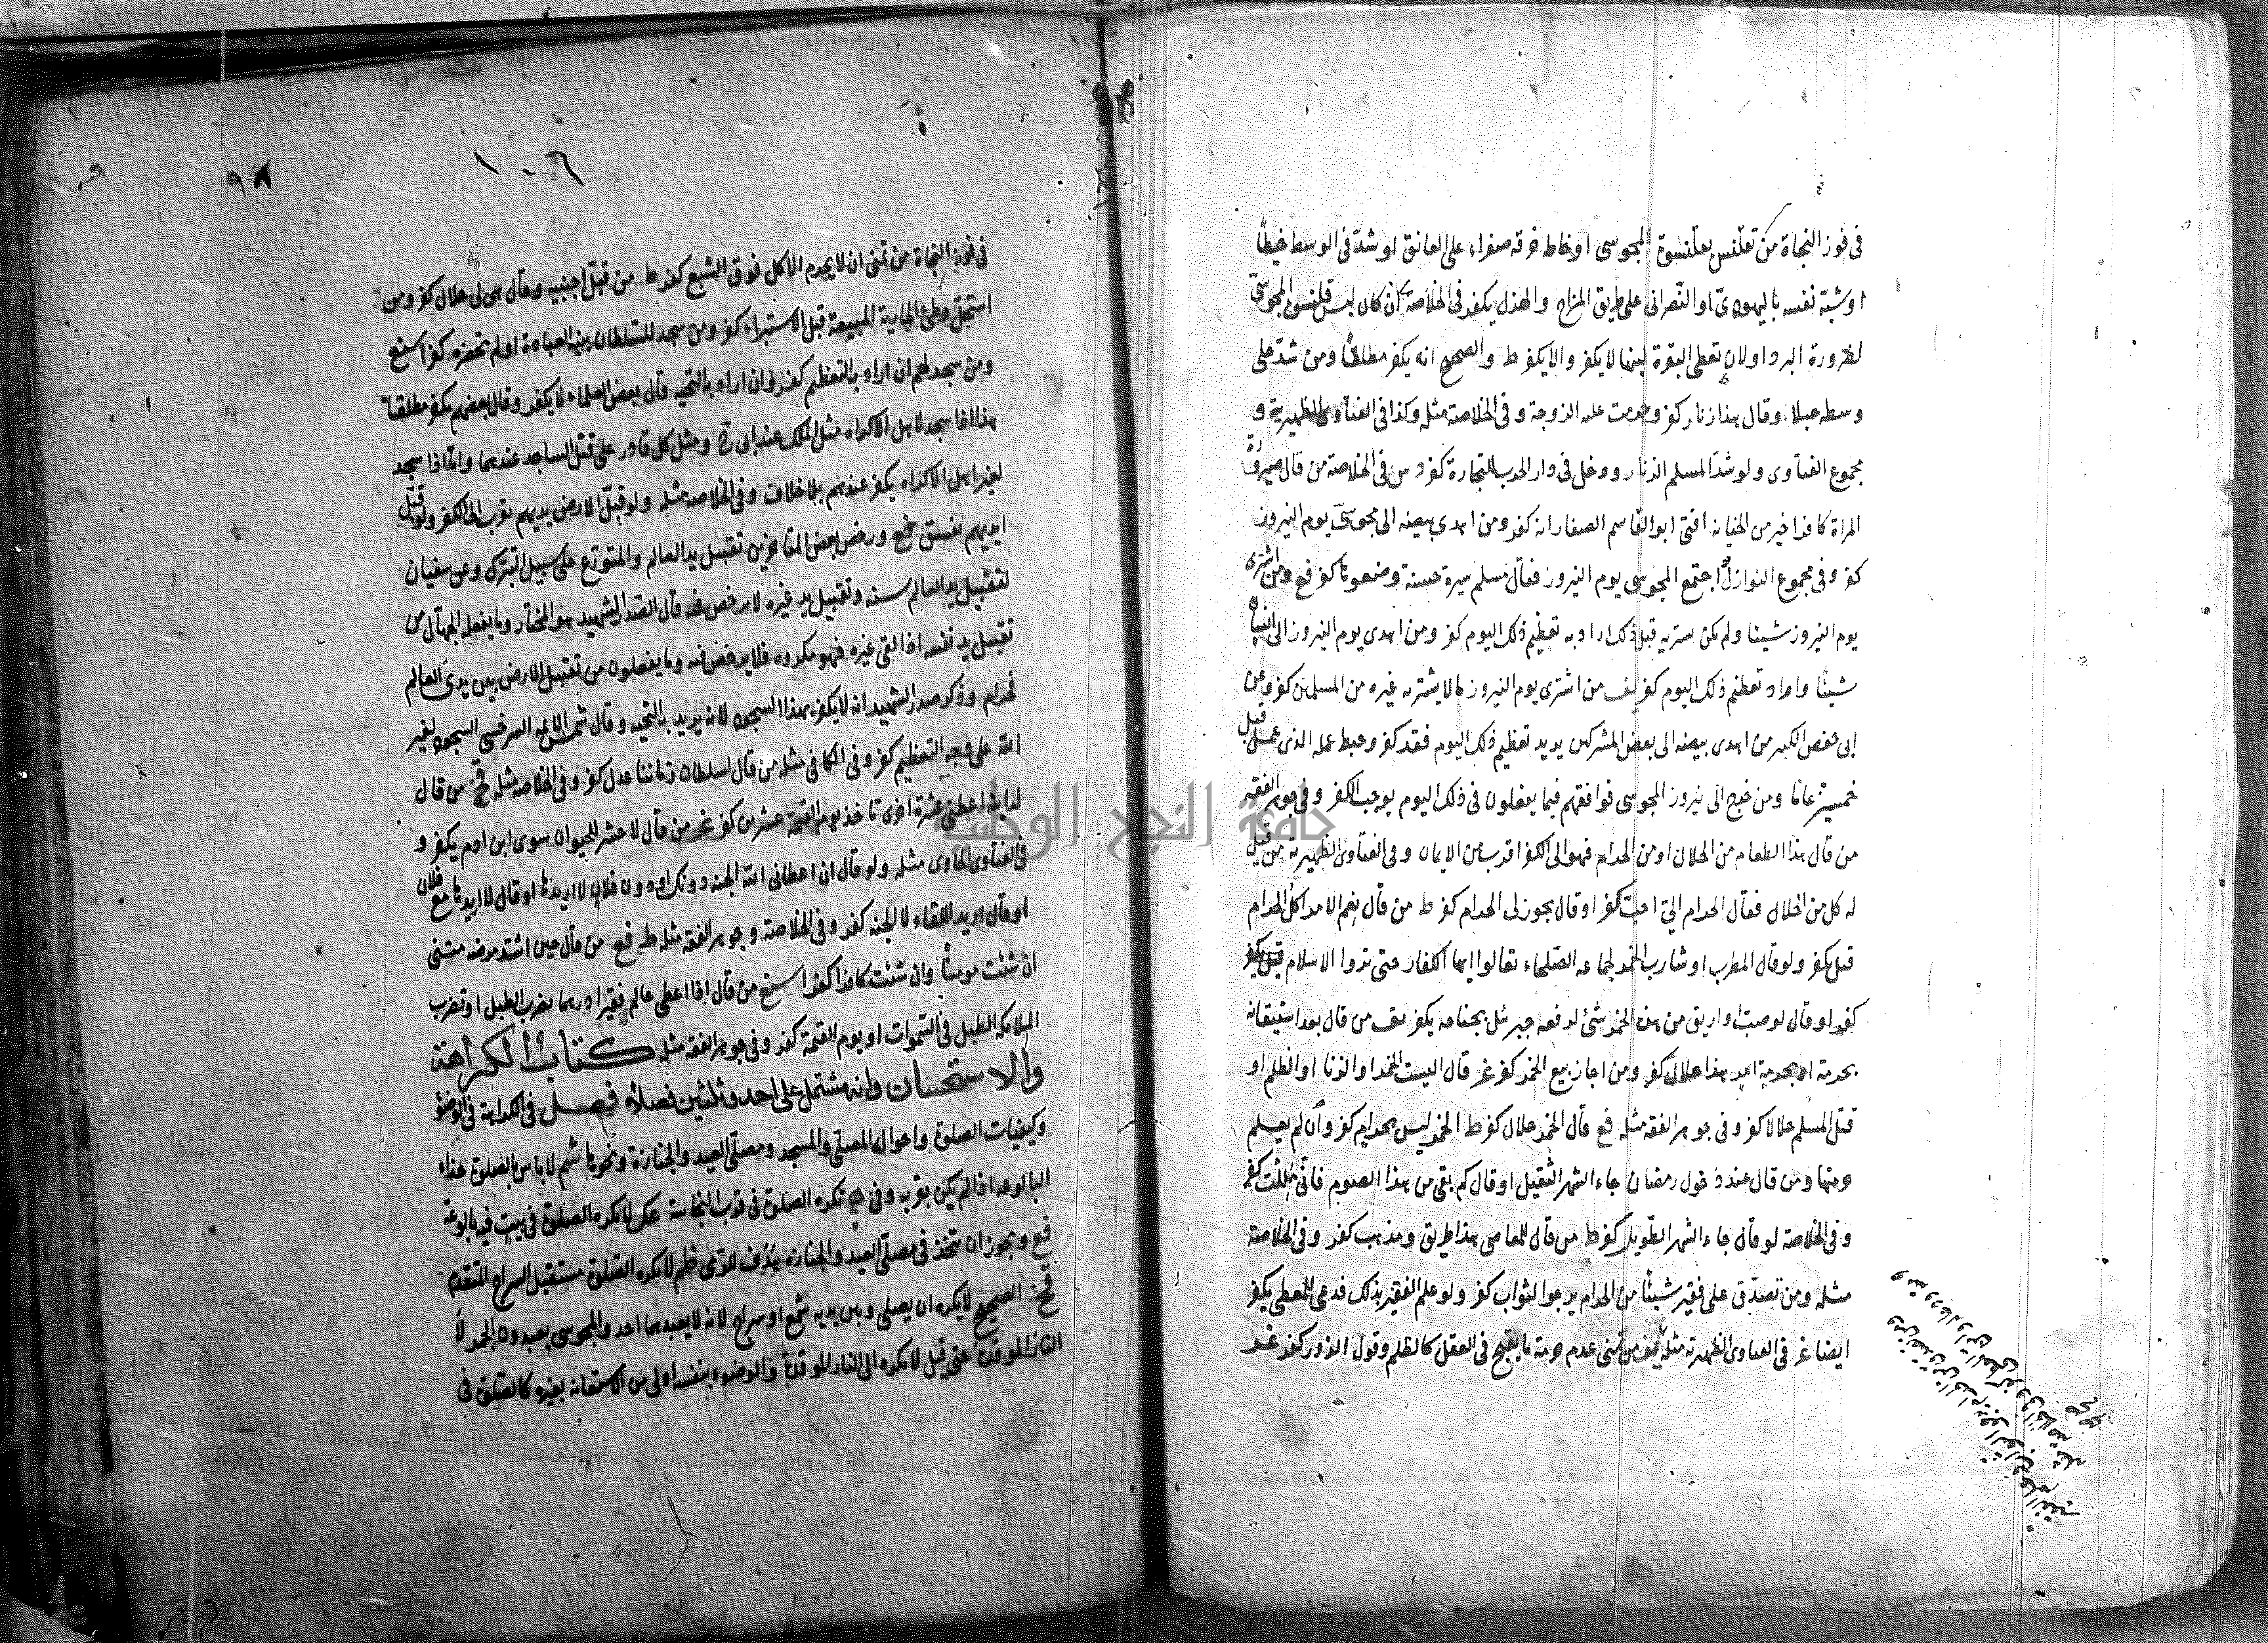 فى فوز النجاة من تقلنس بقلنسوة المجوسى او خاط خرقه صفراء على العاتق او شدّ فى الوسط خيطًا
او شبّه نفسه باليهودىّ او النّصرانى على طريق المزاح والهزل يكفر فى الخلاصة ان كان لبس قلنسوة المجوسىّ
لضرورة البرد او لان تعطى البقرة لبنها لا يكفر والا يكفر ط والصحيح انه يكفر مطلقًا ومن شدّ على
وسطه حبلا وقال هذا زنار كفر وحرمت عله الزوجة وفى الخلاصة مثله وكذا فى الفتاوى الظهيرية و
مجموع الفتاوى ولو شدّ المسلم الزنار ودخل فى دار الحرب للتجارة كفر فى الخلاصة من قال صيرورة
المراة كافرا خير من الخيانه افتى ابو القاسم الصفار انه كفر ومن اهدى بيضه الى مجوسىّ يوم النيروز
كفر وفى مجموع النوازل اجتمع المجوسى يوم النيروز فقال مسلم سيرة حسنة وضعوها كفر فع ومن اشترى
يوم النيروز شيئا ولم يكن يشتريه قبل ذلك اراد به تعظيم ذلك اليوم كفر ومن اهدى يوم النيروز الى انسان
شيئًا واراد تعظيم ذلك اليوم كفر من اشترى يوم النيروز مالا يشتريه غيره من المسلمين كفر وعن
ابى حفص الكبير من اهدى بيضه الى بعض المشركين يريد تعظيم ذلك اليوم فقد كفر وحبط عمله الذى عمل قبل
خمسين عامًا ومن خرج الى نيروز المجوسى فوافقهم فيما يفعلون فى ذلك اليوم يوجب الكفر وفى جوهر الفقه
من قال هذا الطعام من الحلال او من الحرام فهو الى الكفر اقرب من الايمان وفى الفتاوى الظهيرية من قيل
له كل من الحلال فقال الحرام الىّ احبّ كفر او قال يجوز لى الحرام كفر ط من قال نعم الامر اكل الحرام
قيل يكفر ولو قال المطرب او شارب الخمر لجماعه الصّلحاء تعالوا ايها الكفار حتى تروا الاسلام قيل يكفر
كفر او قال لو صبّ او اريق من هذه الخمر شئ لرفعه جبرئل بجناحه يكفر من قال بعد استيقانه
بحرمة او بحرمة امر هذا حلال كفر ومن اجاز بيع الخمر كفر غر قال اليست الخمر او الزنا او الظلم او
قتل المسلم حلالا كفر وفى جوهر الفقه مثله فع قال الخمر حلال كفر ط الخمر ليس بحرام كفر وان لم يعلم
حرمتها ومن قال عند دخول رمضان جاء الشهر الثقيل او قال كم بقى من هذا الصوم فانّى مللت كفر
وفى الخلاصة لو قال جاء الشهر الطّويل كفر ط من قال للمعاصى هذا طريق ومذهب كفر وفى الخلاصة
مثله ومن تصدّق على فقير شيئًا من الحرام يرجو الثواب كفر ولو علم الفقير بذلك فدعى للمعطى يكفر
ايضا غر فى الفتاوى الظهيرية مثله من تمنى عدم حرمة ما يقبح فى العقل كالظلم وقول الزور كفر غر
١٠٦
٩٨
فى فوز النجاة من تمنى ان لا يحرم الاكل فوق الشبع كفر ط من قبّل اجنبيه وقال هى لى حلال كفر ومن
استحلّ وطئ الجارية المبيعة قبل الاستبراء كفر ومن سجد للسّلطان بنيّة العبادة او لم تحضره كفر
ومن سجد لهم ان اراد به التعظيم كفر وان اراد به التحيه قال بعض العلماء لا يكفر وقال بعضهم يكفر مطلقا
هذا اذا سجد لاهل الاكراه مثل الملك عند ابى ح ومثل كل قادر على قتل الساجد عندهما وامّا اذا سجد
لغير اهل الاكراه يكفر عندهم بلا خلاف وفى الخلاصه مثله ولو قبّل الارض يديهم قرب الى الكفر ولو قبّل
ايديهم تفسق ورخص بعض المتاخرين تقبيل يد العالم والمتورّع على سبيل التبرّك وعن سفيان
تقبيل يد العالم سنه وتقبيل يد غيره لا يرخص فيه قال الصّدر الشّهيد هو المختار وما يفعله الجهّال من
تقبيل يد نفسه اذا لقى غيره فهو مكروه فلا يرخص فيه وما يفعلون من تقبيل الارض بين يدى العالم
فحرام وذكر صدر الشهيد انه لا يكفر بهذا السجود لانه يريد به التحيه وقال شمس الائمه السرخسى السجود لغير
الله على وجه التعظيم كفر وفى الكافى مثله من قال لسلطان زماننا عدل كفر وفى الخلاصه مثله من قال
لدائنه اعطنى عشرة اخرى تاخذ يوم القيمة عشرين كفر غر من قال لا حشر للحيوان سوى ابن ادم يكفر و
فى الفتاوى الحاوى مثله ولو قال ان اعطانى الله الجنة دونك او دون فلان لا اريدها او قال لا اريدها مع فلان
او قال اريد اللقاء لا الجنه كفر وفى الخلاصة وجوهر الفقه مثله ط فع من قال حين اشتد مرضه متنى
ان شئت مومنًا وان شئت كافرا كفر من قال اذا اعطى عالم فقيرا درهما يضرب الطبل او تضرب
الملائكه الطبل فى السّموات او يوم القيمة كفر وفى جوهر الفقه مثله كتاب الكراهة
والاستحسان وانه مشتمل على احد وثلثين فصلا فصل فى الكراهة فى الوضوء
وكيفيات الصلوة واحوال المصلّى والمسجد ومصلّى العيد والجنازة ونحوها شم لا باس بالصّلوة حذاء
البالوعه اذا لم يكن بقرب وفى تكره الصلوة فى قرب النجاسة عك لا يكره الصّلوة فى بيت فيه بالوعة
فع ويجوز ان يتخذ فى مصلّى العيد والجنازه لا يكره الصّلوة مستقبل السراج المتقد
الصحيح لا يكره ان يصلى وبين يديه شمع او سراج لانه لا يعبدهما احد والمجوسى يعبدون الجمر لا
النار الموقدة حتى قيل لا يكره الى النار الموقدة والوضوء بنفسه اولى من الاستعانة بغيره كالصّلوة فى
جامعة النجاح الوطنية